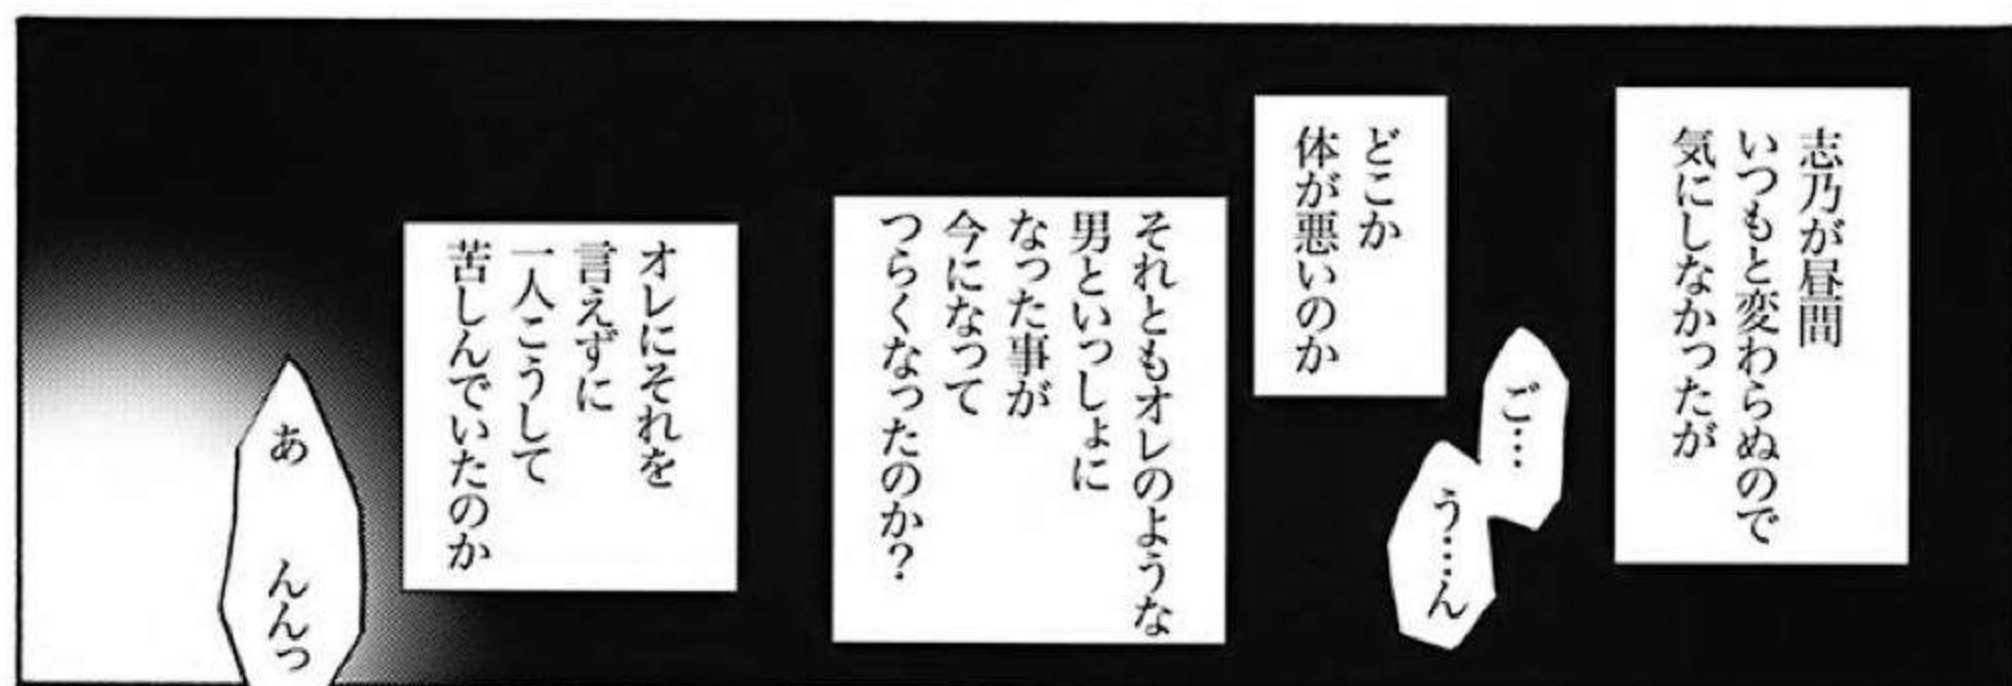 志乃が昼間
いつもと変わらぬので
気にしなかったが
ご…
う…ん
どこか
体が悪いのか
それともオレのような
男といっしょに
なった事が
今になって
つらくなったのか?
オレにそれを
言えずに
一人こうして
苦しんでいたのか
あ
んんっ